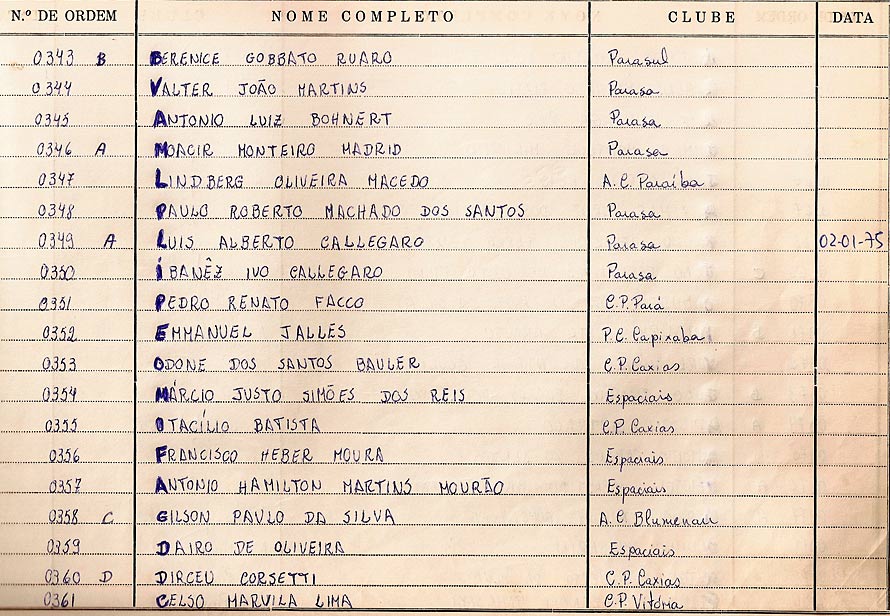 N.º DE ORDEM NOME COMPLETO CLUBE DATA
0343 B BERENICE GOBBATO RUARO Parasul
0344 VALTER JOÃO MARTINS Parasa
0345 ANTONIO LUIZ BOHNERT Parasa
0346 A MOACIR MONTEIRO MADRID Parasa
0347 LINDBERG OLIVEIRA MACEDO A.C. Paraíba
0348 PAULO ROBERTO MACHADO DOS SANTOS Parasa
0349 A LUIS ALBERTO CALLEGARO Parasa 02-01-75
0350 ÍBANÊZ IVO CALLEGARO Parasa
0351 PEDRO RENATO FACCO C.P. Pará
0352 EMMANUEL JALLES P.C. Capixaba
0353 ODONE DOS SANTOS BAULER C.P. Caxias
0354 MÁRCIO JUSTO SIMÕES DOS REIS Espaciais
0355 OTACÍLIO BATISTA C.P. Caxias
0356 FRANCISCO HEBER MOURA Espaciais
0357 ANTONIO HAMILTON MARTINS MOURÃO Espaciais
0358 C GILSON PAULO DA SILVA A.C. Blumenau
0359 DAIRO DE OLIVEIRA Espaciais
0360 D DIRCEU CORSETTI C.P. Caxias
0361 CELSO MARVILA LIMA C.P. Vitória